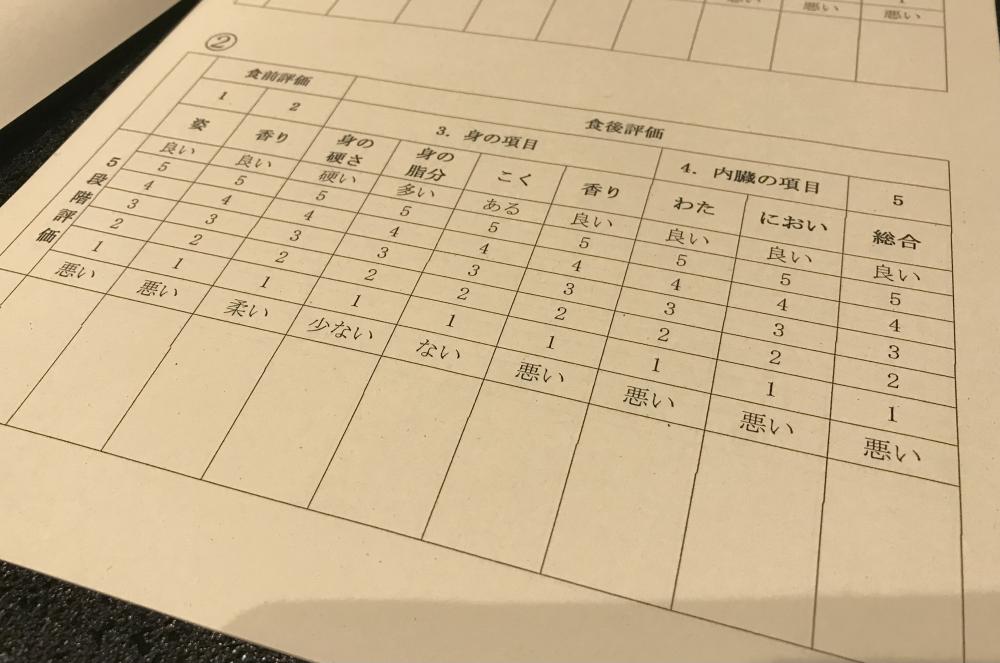 1
悪い 悪い 悪い
②
食前評価 食後評価
1 2 3. 身の項目 4. 内臓の項目 5
姿 香り 身の硬さ 身の脂分 こく 香り わた におい 総合
5段階評価
良い 良い 硬い 多い ある 良い 良い 良い 良い
5 5 5 5 5 5 5 5 5
4 4 4 4 4 4 4 4 4
3 3 3 3 3 3 3 3 3
2 2 2 2 2 2 2 2 2
1 1 1 1 1 1 1 1 1
悪い 悪い 柔い 少ない ない 悪い 悪い 悪い 悪い